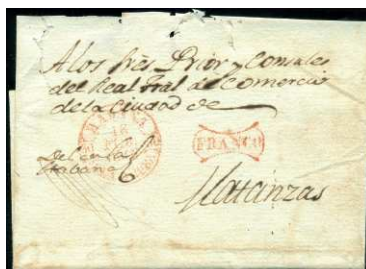 A los Sres Prior y Consules
del Real Tral de Comercio
de la Ciudad de
HABANA
FRANCO
del de la
Habana
Matanzas